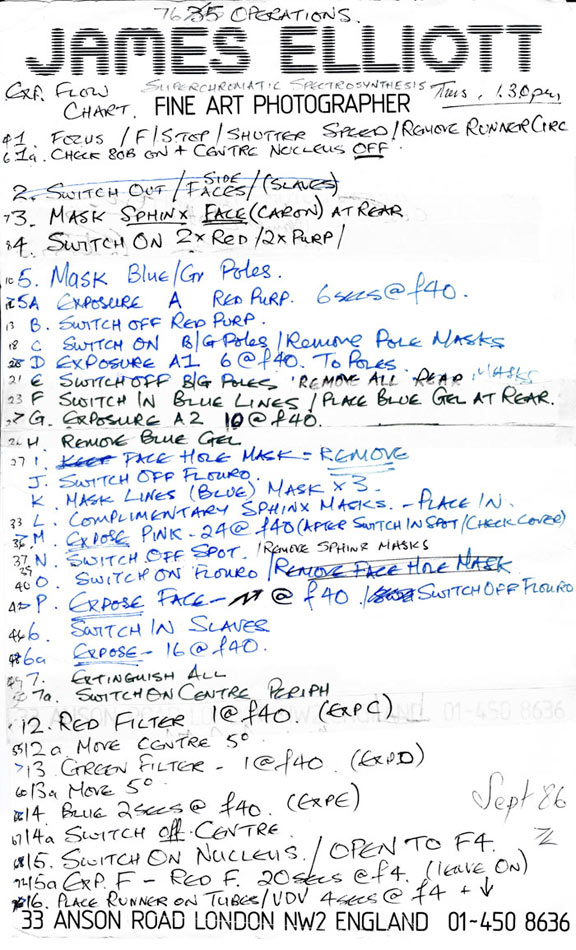 76 35 OPERATIONS.
JAMES ELLIOTT
EXP. FLOW CHART.
SUPERCHROMATIC SPECTROSYNTHESIS
FINE ART PHOTOGRAPHER
Tues, 1.30pm,
1. FOCUS / F/STOP / SHUTTER SPEED / REMOVE RUNNER CIRC
1a. CHECK 80B ON + CENTRE NUCLEUS OFF.
2. SWITCH OUT / SIDE FACES / (SLAVES)
3. MASK SPHINX FACE (CARON) AT REAR
4. SWITCH ON 2 x RED / 2 x PURP /
5. MASK BLUE/Gr POLES.
5A EXPOSURE A RED PURP. 6 secs @ f40.
13 B. SWITCH OFF RED PURP.
18 C SWITCH ON B/G POLES / REMOVE POLE MASKS
20 D EXPOSURE A1. 6 @ f40. TO POLES.
21 E SWITCH OFF B/G POLES REMOVE ALL REAR MASKS
23 F SWITCH IN BLUE LINES / PLACE BLUE GEL AT REAR.
G. EXPOSURE A2 10 @ f40.
H REMOVE BLUE GEL
27 I. KEEP FACE HOLE MASK = REMOVE
J. SWITCH OFF FLOURO.
K. MASK LINES (BLUE) MASK x 3.
33 L. COMPLIMENTARY SPHINX MASKS. - PLACE IN.
M. EXPOSE PINK - 24 @ f40 (AFTER SWITCH IN SPOT / CHECK COVER)
37 N. SWITCH OFF SPOT. / REMOVE SPHINX MASKS
40 O. SWITCH ON FLOURO / REMOVE FACE HOLE MASK
P. EXPOSE FACE - @ f40 / SWITCH OFF FLOURO
6. SWITCH IN SLAVES
6a EXPOSE - 16 @ f40.
7. EXTINGUISH ALL
7a. SWITCH ON CENTRE PERIPH
33 ANSON ROAD LONDON NW2 ENGLAND 01-450 8636
12. RED FILTER 1 @ f40. (EXP C)
12a MOVE CENTRE 5°
13 GREEN FILTER - 1 @ f40 (EXP D)
13a MOVE 5°
14 BLUE 2 SECS @ f40. (EXP E)
14a SWITCH off CENTRE
Sept 86
15. SWITCH ON NUCLEUS. / OPEN TO F4.
15a EXP. F - RED F. 20 SECS @ f4. (LEAVE ON)
16. PLACE RUNNER ON TUBES / UDV 4 SECS @ f4 + ↓
33 ANSON ROAD LONDON NW2 ENGLAND 01-450 8636